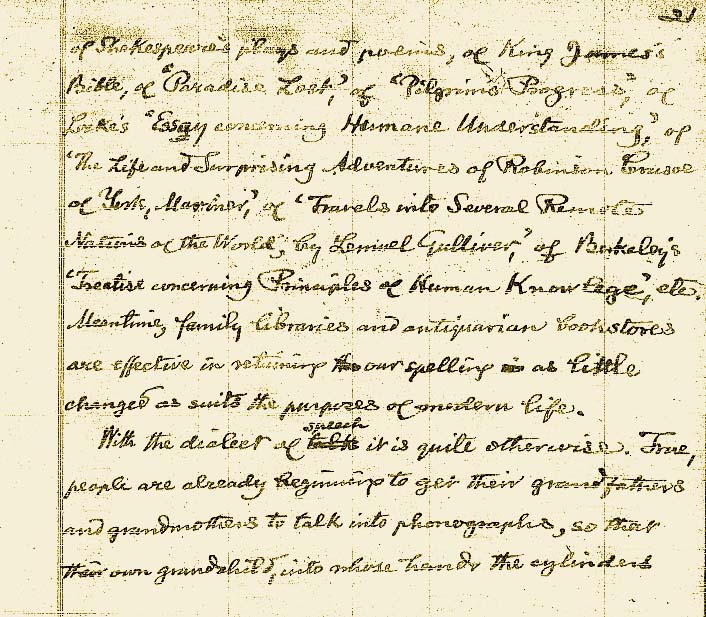 21
of Shakespeare's plays and poems, of King James's
Bible, of "Paradise Lost," of "Pilgrim's Progress," of
Locke's "Essay concerning Humane Understanding," of
"The Life and Surprising Adventures of Robinson Crusoe
of York, Mariner," of "Travels into Several Remote
Nations of the World, by Lemuel Gulliver," of Berkeley's
"Treatise concerning Principles of Human Knowledge," etc.
Meantime, family libraries and antiquarian bookstores
are effective in retaining our spelling as little
changed as suits the purposes of modern life.
With the dialect of speech it is quite otherwise. True,
people are already beginning to get their grandfathers
and grandmothers to talk into phonographs, so that
their own grandchild, into whose hands the cylinders